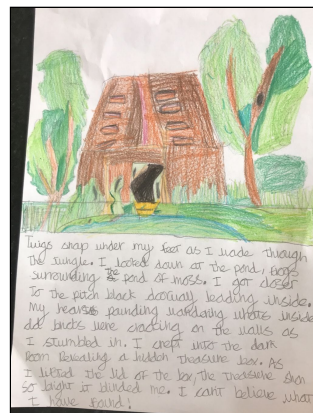 Twigs snap under my feet as I wade through
the Jungle. I looked down at the pond, frogs
surrounding the pond of moss. I got closer
To the pitch black doorway leading inside.
My heart pounding wondering whats inside
old knobs were cracking on the walls as
I stumbled in. I crept into the dark
room revealing a hidden treasure box. As
I lifted the lid of the box, the treasure shon
So bright it blinded me. I cant believe what
I have found!